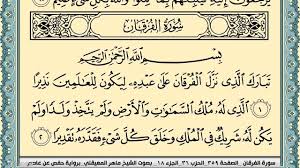 سُورَةُ الْفُرْقَانِ
بِسْمِ اللَّهِ الرَّحْمَٰنِ الرَّحِيمِ
تَبَارَكَ الَّذِي نَزَّلَ الْفُرْقَانَ عَلَىٰ عَبْدِهِ لِيَكُونَ لِلْعَالَمِينَ نَذِيرًا ١
الَّذِي لَهُ مُلْكُ السَّمَاوَاتِ وَالْأَرْضِ وَلَمْ يَتَّخِذْ وَلَدًا وَلَمْ
يَكُن لَّهُ شَرِيكٌ فِي الْمُلْكِ وَخَلَقَ كُلَّ شَيْءٍ فَقَدَّرَهُ تَقْدِيرًا ٢
سورة الفرقان الصفحة ٣٥٩ الحزب ٣٦ الجزء ١٨ بصوت الشيخ ماهر المعيقلي برواية حفص عن عاصم